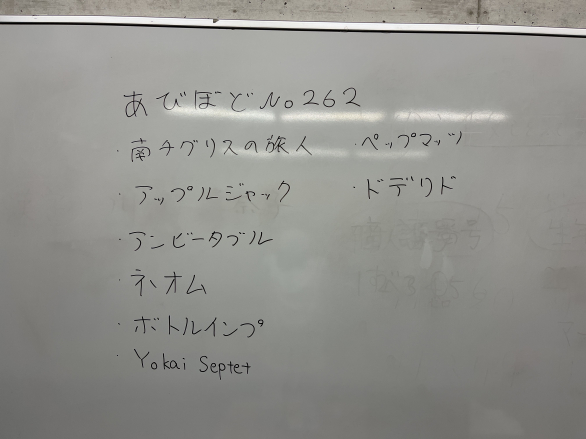 あびぼどNo262
・南チグリスの旅人
・アップルジャック
・アンビータブル
・ネオム
・ボトルインプ
・Yokai Septet
・ペップマッソ
・ドデリド